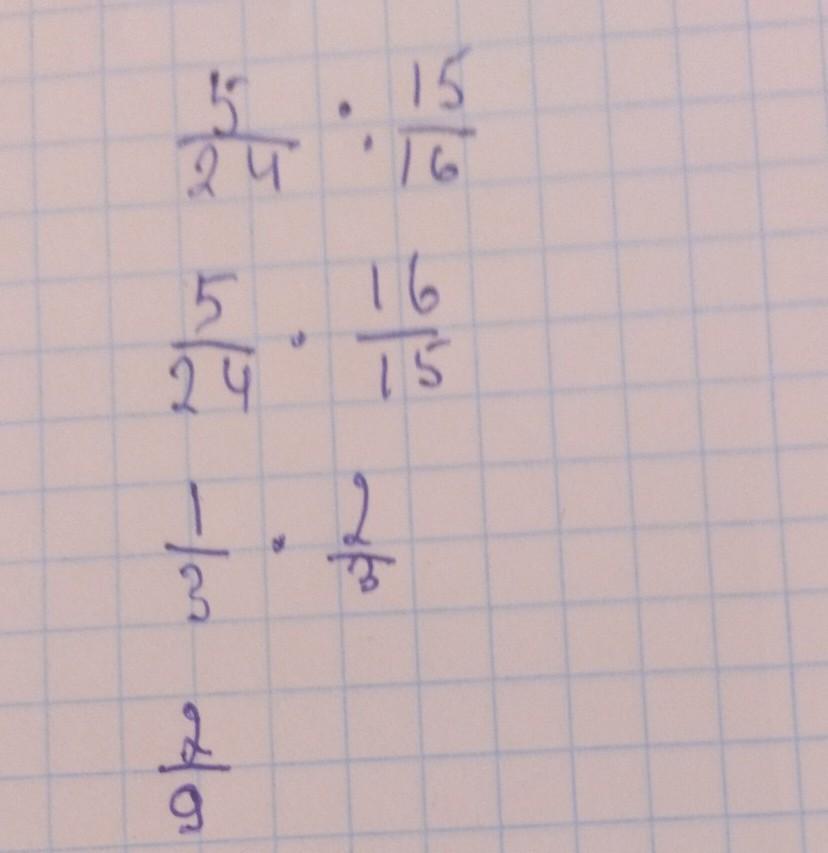 5/24 : 15/16
5/24 · 16/15
1/3 · 2/3
2/9